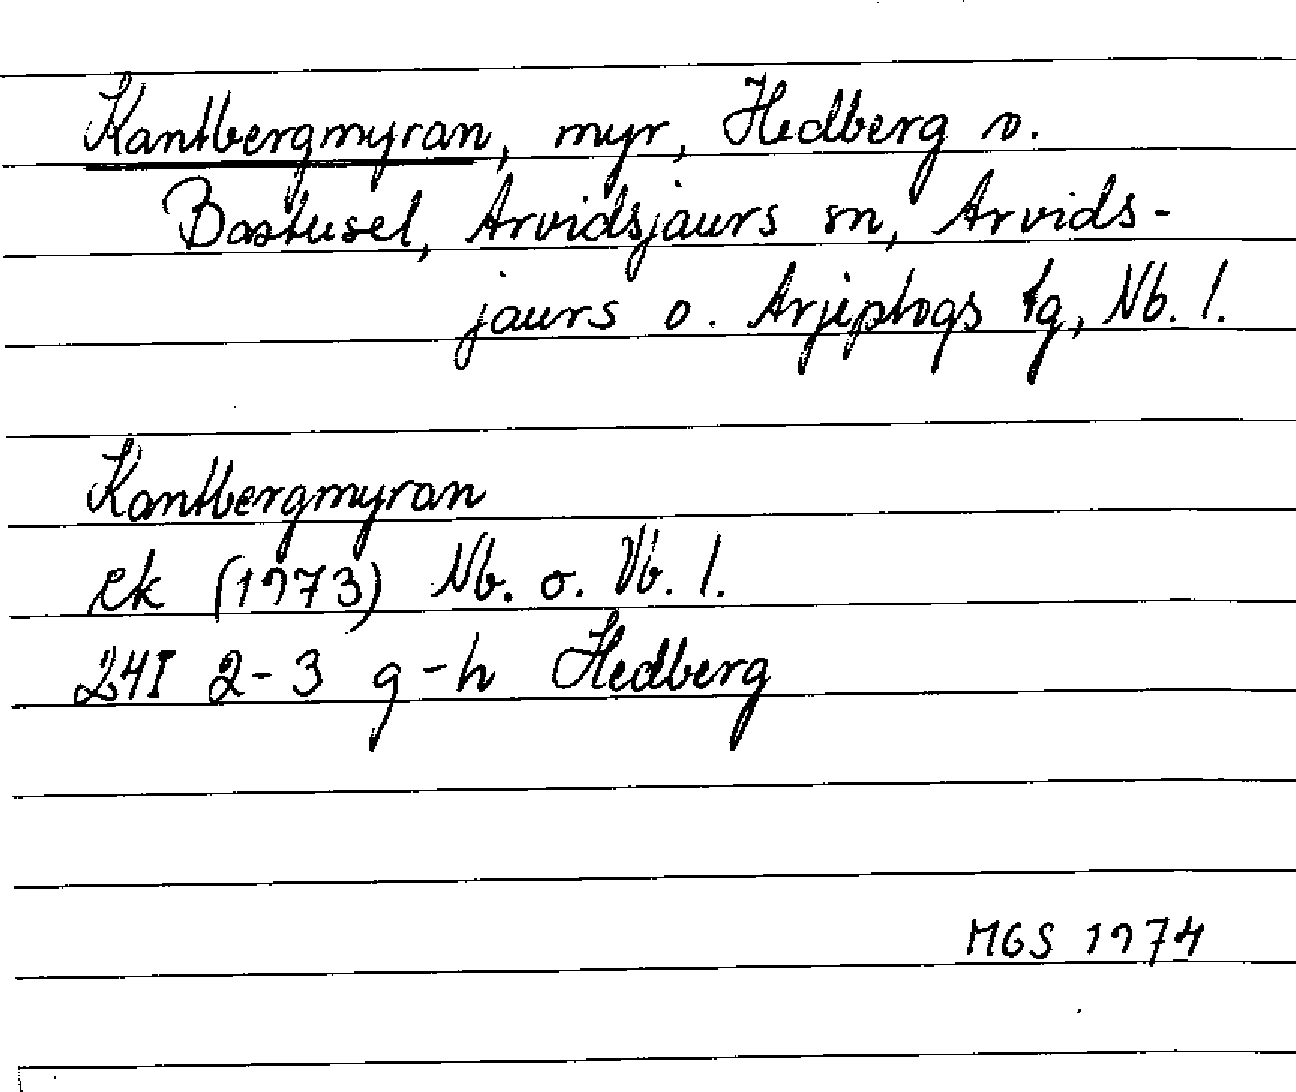 Kantbergmyran, myr, Hedberg o.
Bastusel, Arvidsjaurs sn, Arvids-
jaurs o. Arjeplogs tg, Nb. l.
Kantbergmyran
ek (1973) Nb. o. Vb. l.
24I 2-3 g-h Hedberg
MGS 1974